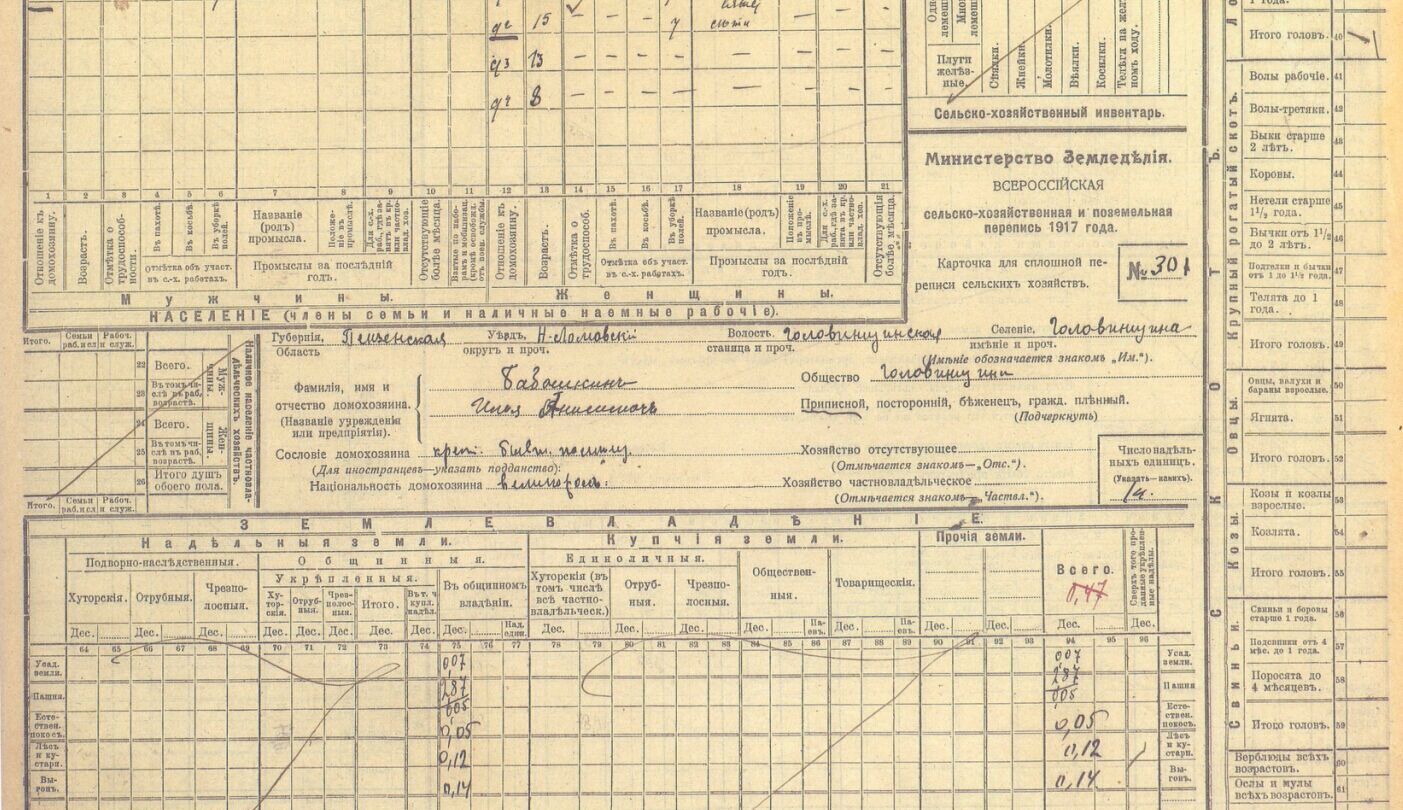 д2 15 — — — 7 — — —
д3 13 — — — — — — — —
д4 8 — — — — — — — —
Плуги желѣзные.
Сѣялки.
Жнейки.
Молотилки.
Вѣялки.
Косилки.
Телѣги на желѣзномъ ходу.
Сельско-хозяйственный инвентарь.
Министерство Земледѣлія.
ВСЕРОССІЙСКАЯ
сельско-хозяйственная и поземельная
перепись 1917 года.
Карточка для сплошной пе-
реписи сельскихъ хозяйствъ.
№ 301
1 2 3 4 5 6 7 8 9 10 11 12 13 14 15 16 17 18 19 20 21
Отношеніе къ домохозяину.
Возрастъ.
Отмѣтка о трудоспособности.
Въ пахотѣ.
Въ косьбѣ.
Въ уборкѣ полей.
Отмѣтка объ участ. въ с.-х. работахъ.
Названіе (родъ) промысла.
Положеніе въ промыслѣ.
Промыслы за послѣдній годъ.
Отсутствующіе болѣе мѣсяца.
Отношеніе къ домохозяину.
Возрастъ.
Отмѣтка о трудоспособ.
Въ пахотѣ.
Въ косьбѣ.
Въ уборкѣ полей.
Отмѣтка объ участ. въ с.-х. работахъ.
Названіе (родъ) промысла.
Положеніе въ промыслѣ.
Промыслы за послѣдній годъ.
Отсутствующія болѣе мѣсяца.
Мужчины. Женщины.
НАСЕЛЕНІЕ (члены семьи и наличные наемные рабочіе).
Итого. Семьи раб. и сл. Рабоч. и служ.
22 Всего.
23 Въ томъ числѣ въ раб. возрастѣ.
Мужчины.
24 Всего.
25 Въ томъ числѣ въ раб. возрастѣ.
Женщины.
26 Итого душъ обоего пола.
Наличное населеніе частновладѣльческихъ хозяйствъ.
Итого. Семьи раб. и сл. Рабоч. и служ.
Губернія. Пензенская Уѣздъ, Н-Ломовскій Волость. Головинщинская Селеніе, Головинщина
Область округъ и проч. станица и проч. имѣніе и проч.
(Имѣніе обозначается знакомъ „Им.“).
Фамилія, имя и Бабошкинъ Общество Головинщин
отчество домохозяина. Илья Анисимовъ Приписной, посторонній, бѣженецъ, гражд. плѣнный.
(Названіе учрежденія или предпріятія). (Подчеркнуть)
Сословіе домохозяина крест. бывш. Хозяйство отсутствующее
(Для иностранцевъ—указать подданство): (Отмѣчается знакомъ—„Отс.“).
Національность домохозяина великороссъ Хозяйство частновладѣльческое
(Отмѣчается знакомъ—„Частвл.“).
Число надѣльныхъ единицъ.
(Указать—какихъ).
ЗЕМЛЕВЛАДѢНІЕ.
Надѣльныя земли. Купчія земли. Прочія земли. Всего.
0,47
Подворно-наслѣдственныя. Общинныя. Единоличныя. Общественныя. Товарищескія.
Укрѣпленныя. Въ общинномъ владѣніи.
Хуторскія. Отрубныя. Чрезполосныя. Хуторскія. Отрубныя. Чрезполосныя. Итого. Въ т. ч. купл. надѣл.
Хуторскія (въ томъ числѣ всѣ частновладѣльческ.) Отрубныя. Чрезполосныя.
Сверхъ того проданные укрѣпленные надѣлы.
Дес. Дес. Дес. Дес. Дес. Дес. Дес. Дес. Дес. Над. един. Дес. Дес. Дес. Дес. Паевъ. Дес. Паевъ. Дес. Дес. Дес. Дес.
64 65 66 67 68 69 70 71 72 73 74 75 76 77 78 79 80 81 82 83 84 85 86 87 88 89 90 91 92 93 94 95 96
Усад. земли. 0,07 0,07 Усад. земли.
Пашня. 2,87 2,87 Пашня
0,05 0,05
Естествен. покосъ. 0,05 0,05 Естествен. покосъ.
Лѣсъ и кустарн. 0,12 0,12 Лѣсъ и кустарн.
Выгонъ. 0,14 0,14 Выгонъ.
СКОТЪ.
Крупный рогатый скотъ.
Итого головъ. 40
Волы рабочіе. 41
Волы-третяки. 42
Быки старше 2 лѣтъ. 43
Коровы. 44
Нетели старше 1½ года. 45
Бычки отъ 1½ до 2 лѣтъ. 46
Подтелки и бычки отъ 1 до 1½ года. 47
Телята до 1 года. 48
Итого головъ. 49
Овцы.
Овцы, валухи и бараны взрослые. 50
Ягнята. 51
Итого головъ. 52
Козы.
Козы и козлы взрослые. 53
Козлята. 54
Итого головъ. 55
Свиньи.
Свиньи и боровы старше 1 года. 56
Подсвинки отъ 4 мѣс. до 1 года. 57
Поросята до 4 мѣсяцевъ. 58
Итого головъ. 59
Верблюды всѣхъ возрастовъ. 60
Ослы и мулы всѣхъ возрастовъ. 61